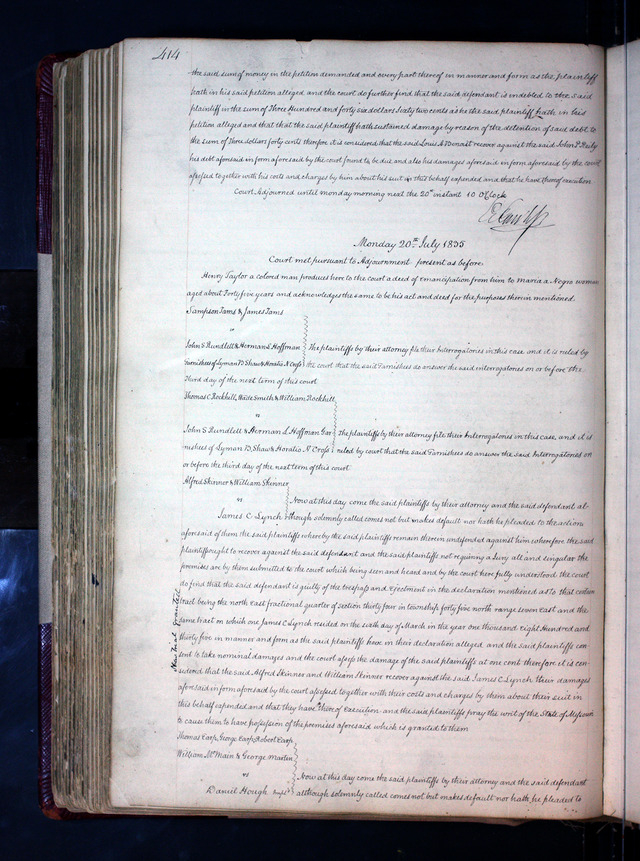 414
the said sum of money in the petition demanded and every part thereof in manner and form as the plaintiff
hath in his said petition alleged and the court do further find that the said defendant is indebted to the said
plaintiff in the sum of Three Hundred and forty six dollars Sixty two cents as he the said plaintiff hath in his
petition alleged and that that the said plaintiff hath sustained damage by reason of the detention of said debt to
the sum of Three dollars forty cents therefore it is considered that the said Louis A Benoist recover against the said John P Reily
his debt aforesaid in form aforesaid by the court found to be due and also his damages aforesaid in form aforesaid by the court
assessed together with his costs and charges by him about his suit in this behalf expended and that he have thereof execution
Court Adjourned until monday morning next the 20th instant 10 O'Clock
Monday 20th July 1835
Court met pursuant to Adjournment present as before
Henry Taylor a colored man produces here to the court a deed of emancipation from him to maria a Negro woman
aged about Forty five years and acknowledges the same to be his act and deed for the purposes therein mentioned
Sampson Tams & James Tams
vs
John S Rundlett & Herman L Hoffman The plaintiffs by their attorney file their Interrogatories in this case and it is ruled by
Garnishees of Lyman D Shaw & Horatio N Cross the court that the said Garnishees do answer the said interrogatories on or before the
third day of the next term of this court
Thomas C Rockhill, Wade Smith & William Rockhill
vs
John S Rundlett & Herman L Hoffman Gar The plaintiffs by their attorney file their Interrogatories in this case, and it is
nishees of Lyman D, Shaw & Horatio N Cross ruled by court that the said Garnishees do answer the said Interrogatories on
or before the third day of the next term of this court
Alfred Skinner & William Skinner
vs Now at this day come the said plaintiffs by their attorney and the said defendant al-
James C. Lynch though solemnly called comes not but makes default nor hath he pleaded to the action
aforesaid of them the said plaintiffs whereby the said plaintiffs remain therein undefended against him wherefore the said
plaintiffs ought to recover against the said defendant and the said plaintiffs not requiring a Jury all and singular the
premises are by them submitted to the court which being seen and heard and by the court here fully understood the court
do find that the said defendant is guilty of the trespass and Ejectment in the declaration mentioned as to that certain
tract being the north east fractional quarter of section thirty four in township forty five north range seven east and the
same tract on which one James C Lynch resided on the sixth day of March in the year one thousand eight Hundred and
thirty five in manner and form as the said plaintiffs have in their declaration alleged and the said plaintiffs con
sent to take nominal damages and the court assess the damage of the said plaintiffs at one cent therefore it is con
sidered that the said Alfred Skinner and William Skinner recover against the said James C Lynch their damages
aforesaid in form aforesaid by the court assessed together with their costs and charges by them about their suit in
this behalf expended and that they have thereof Execution and the said plaintiffs pray the writ of the State of Missouri
to cause them to have possession of the premises aforesaid which is granted to them
New trial Granted
Thomas Earp, George Earp, Robert Earp
William McMain & George martin
vs Now at this day come the said plaintiffs by their attorney and the said defendant
Daniel Hough although solemnly called comes not but makes default nor hath he pleaded to